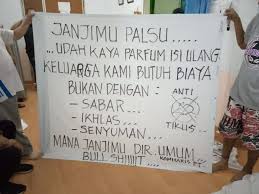 JANJIMU PALSU.....
...UDAH KAYA PARFUM ISI ULANG
KELUARGA KAMI BUTUH BIAYA
BUKAN DENGAN :
- SABAR...
- IKHLAS...
- SENYUMAN...
ANTI
TIKUS..
MANA JANJIMU DIR. UMUM
BULL SHIIIIIT....